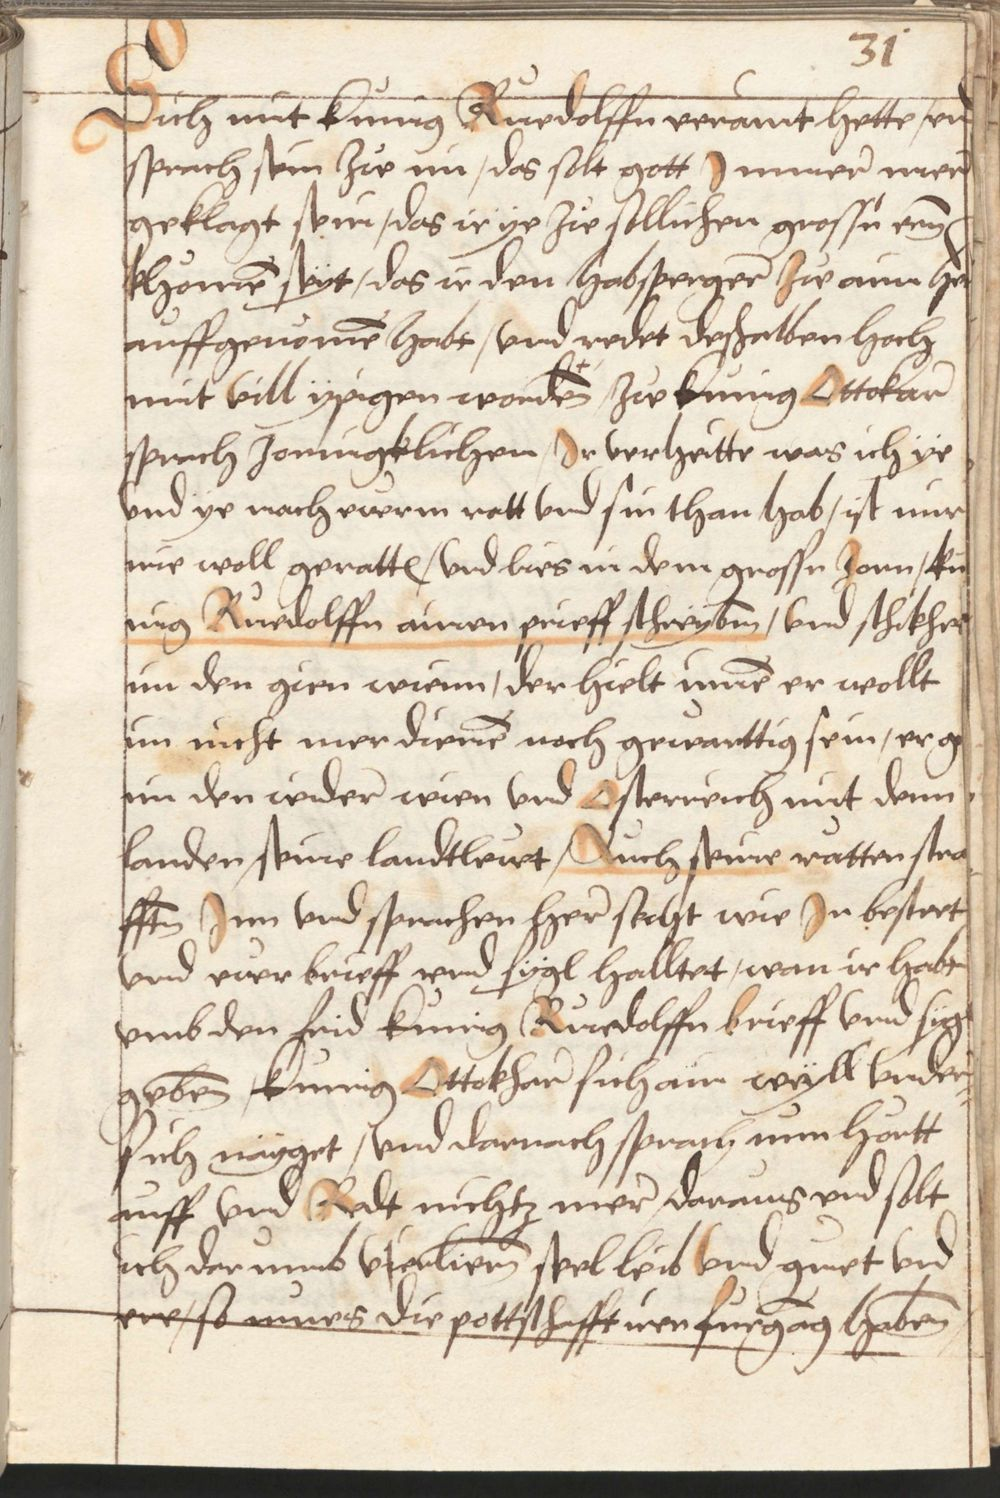 31
Sich mit kunig Ruedolffn veraint hette / und
sprach sein Zu im / das solt gott Immer mer
geklagt sein / das ir ye Zu sollichen grossn ern
khomē seyt / das ir den habsperger Zu aim her
auffgenomē habt / und redet deshalben hoch
mit vill ypigen worden / Zu kunig Ottokar
sprach Zornigklichen / Ir verheitte was ich ye
und ye nach ewerm ratt und sin than hab / ist mir
nie woll geratt / und lies in dem grossn Zorn / ku
nig Ruedolffn ainen prieff schreyben / und schikht
im den gien wienn / der hielt innē er wollt
im nicht mer dienē noch gewarttig sein / er ge
im den wider wien und Osterreich mit denn
landen / seine landtlewt / Auch seine ratten stra
fftn Inn und sprachen her secht wie Ir besteet
und ewer brieff und sygl halltet / wan ir habt
umb den frid kunig Ruedolffn brieff und sigl
geben / kunig Ottokhar sich ain weyll under
sich nayget / und darnach sprach nun hortt
auff und Redt nichtz mer daraus und solt
ich darumb verliern seel leib und guet und
ere / so mues die pottschafft iren furgāg haben